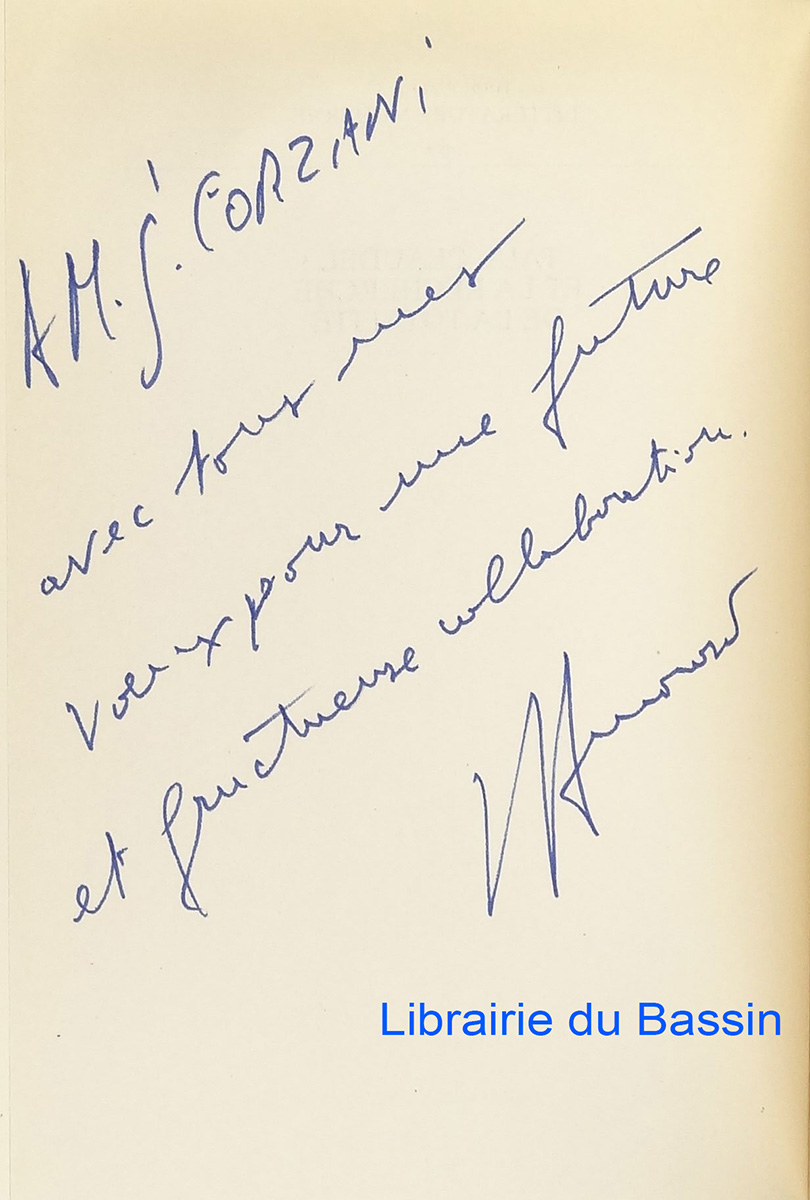 A M. J. CORZANI
avec tous mes
voeux pour une future
et fructueuse collaboration.
Librairie du Bassin